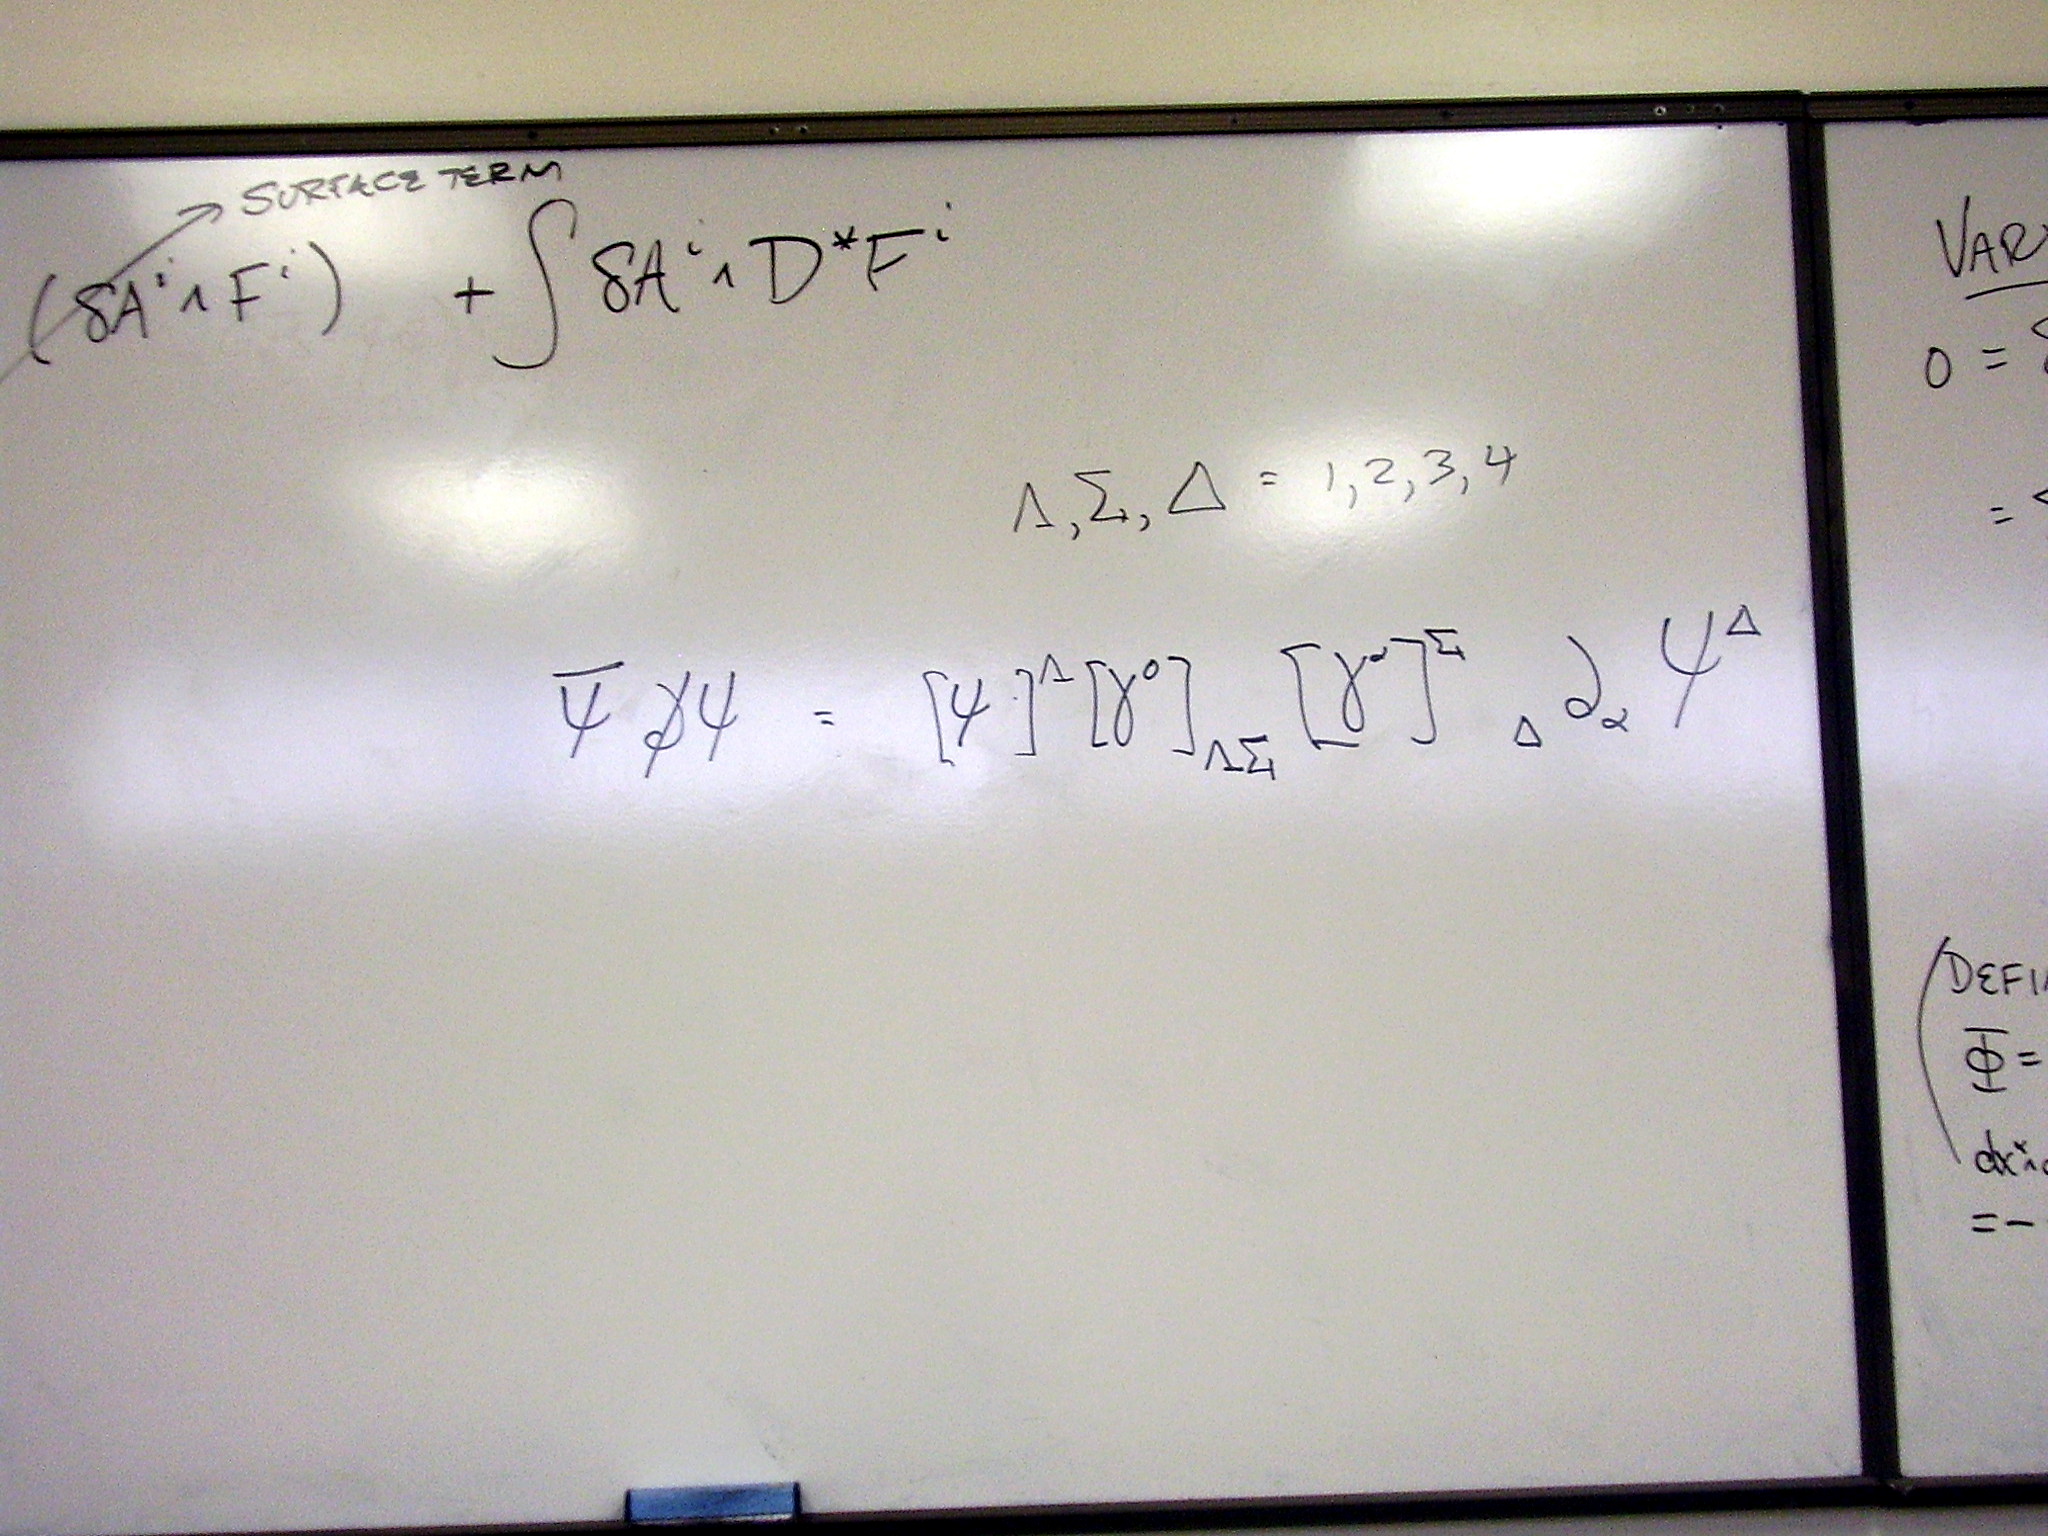 SURFACE TERM
(δAⁱ ∧ Fⁱ) + ∫ δAⁱ ∧ D*Fⁱ
Λ, Σ, Δ = 1, 2, 3, 4
ψ̄ ∂̸ ψ = [ψ]^Λ [γ⁰]_ΛΣ [γ^α]^Σ_Δ ∂_α ψ^Δ
0 =
=
Φ̄ =
= −